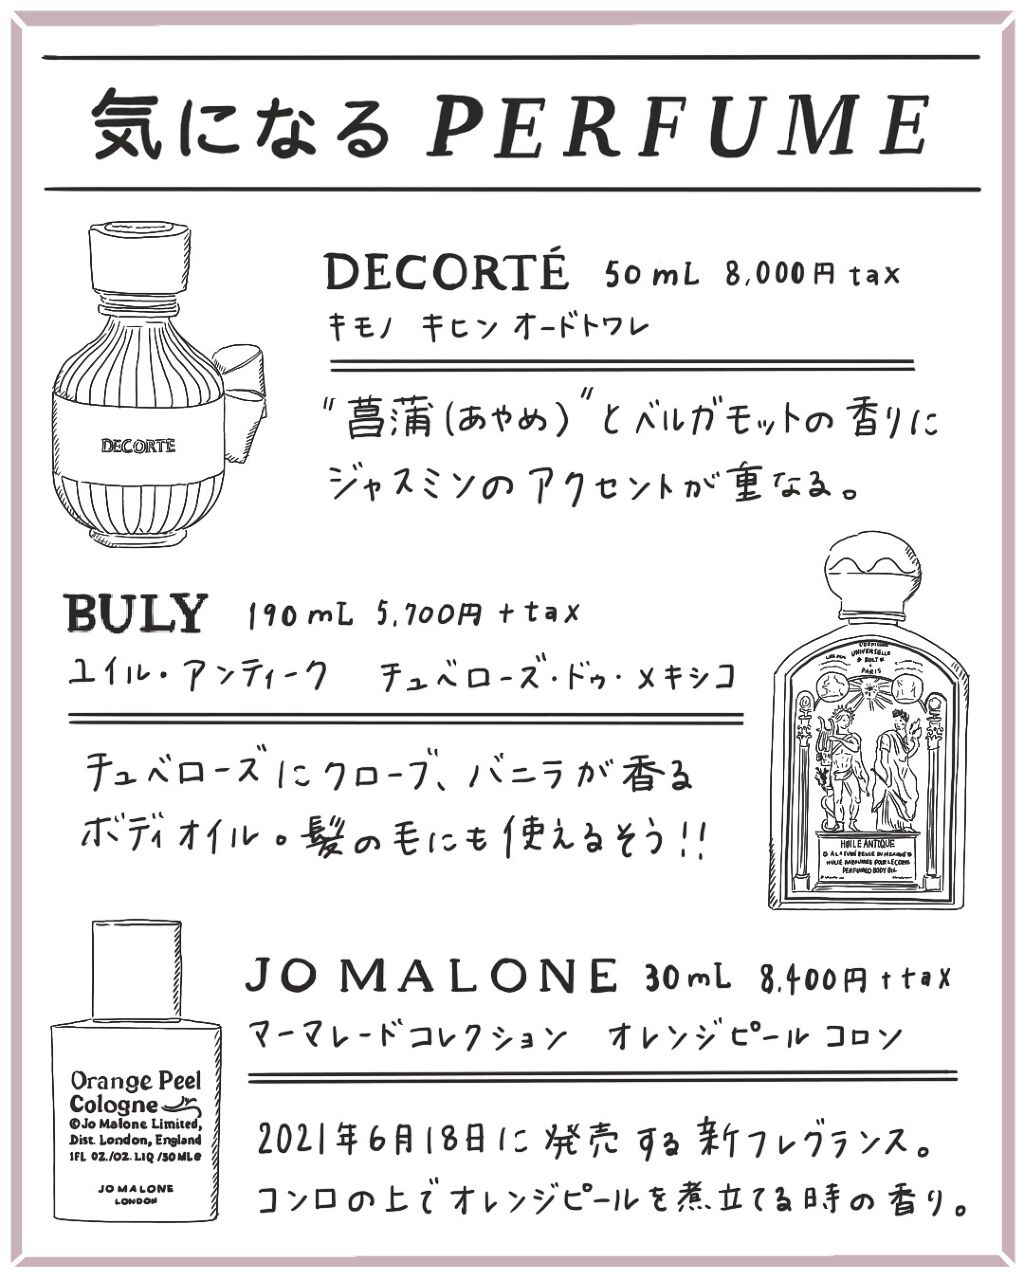 気になる PERFUME
DECORTÉ 50mL 8,000円 tax
キモノ キヒン オードトワレ
"菖蒲(あやめ)"とベルガモットの香りに
ジャスミンのアクセントが重なる。
DECORTÉ
BULY 190mL 5,700円 + tax
ユイル・アンティーク チュベローズ・ドゥ・メキシコ
チュベローズにクローブ、バニラが香る
ボディオイル。髪の毛にも使えるそう!!
UNIVERSELLE
BULY
PARIS
HUILE ANTIQUE
PERFUMED BODY OIL
JO MALONE 30mL 8,400円 + tax
マーマレードコレクション オレンジピール コロン
2021年6月18日に発売する新フレグランス。
コンロの上でオレンジピールを煮立てる時の香り。
Orange Peel
Cologne
©Jo Malone Limited,
Dist. London, England
1FL OZ./OZ. LIQ /30MLe
JO MALONE
LONDON